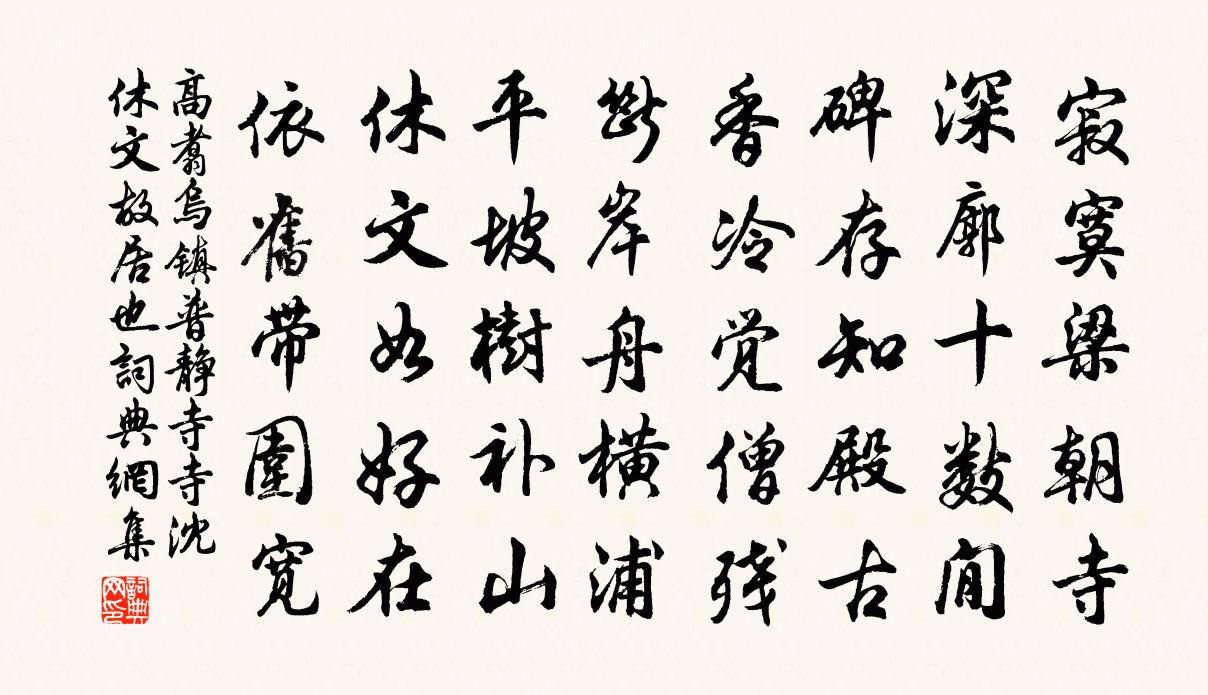 寂寞梁朝寺
深廓十数间
碑存知殿古
香冷觉僧残
断岸舟横浦
平坡樹补山
休文如好在
依舊带圍宽
高翥烏镇普静寺寺沈
休文故居也詞典網集
詞典
网印